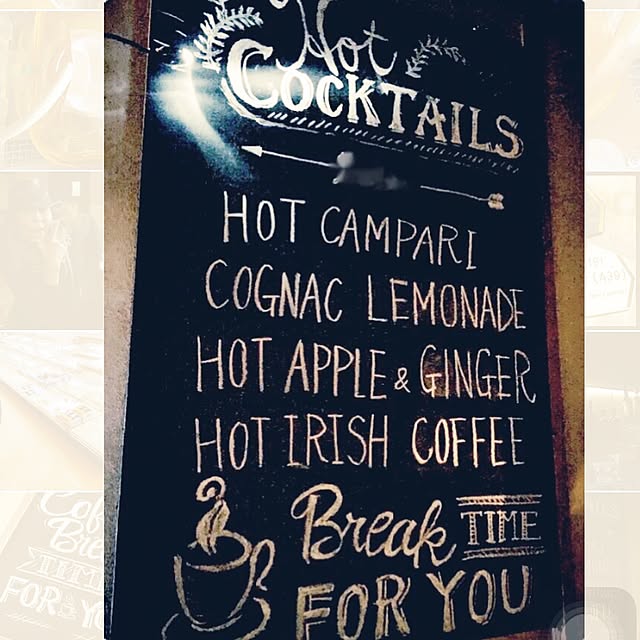 Hot
COCKTAILS
HOT CAMPARI
COGNAC LEMONADE
HOT APPLE & GINGER
HOT IRISH COFFEE
Break TIME
FOR YOU